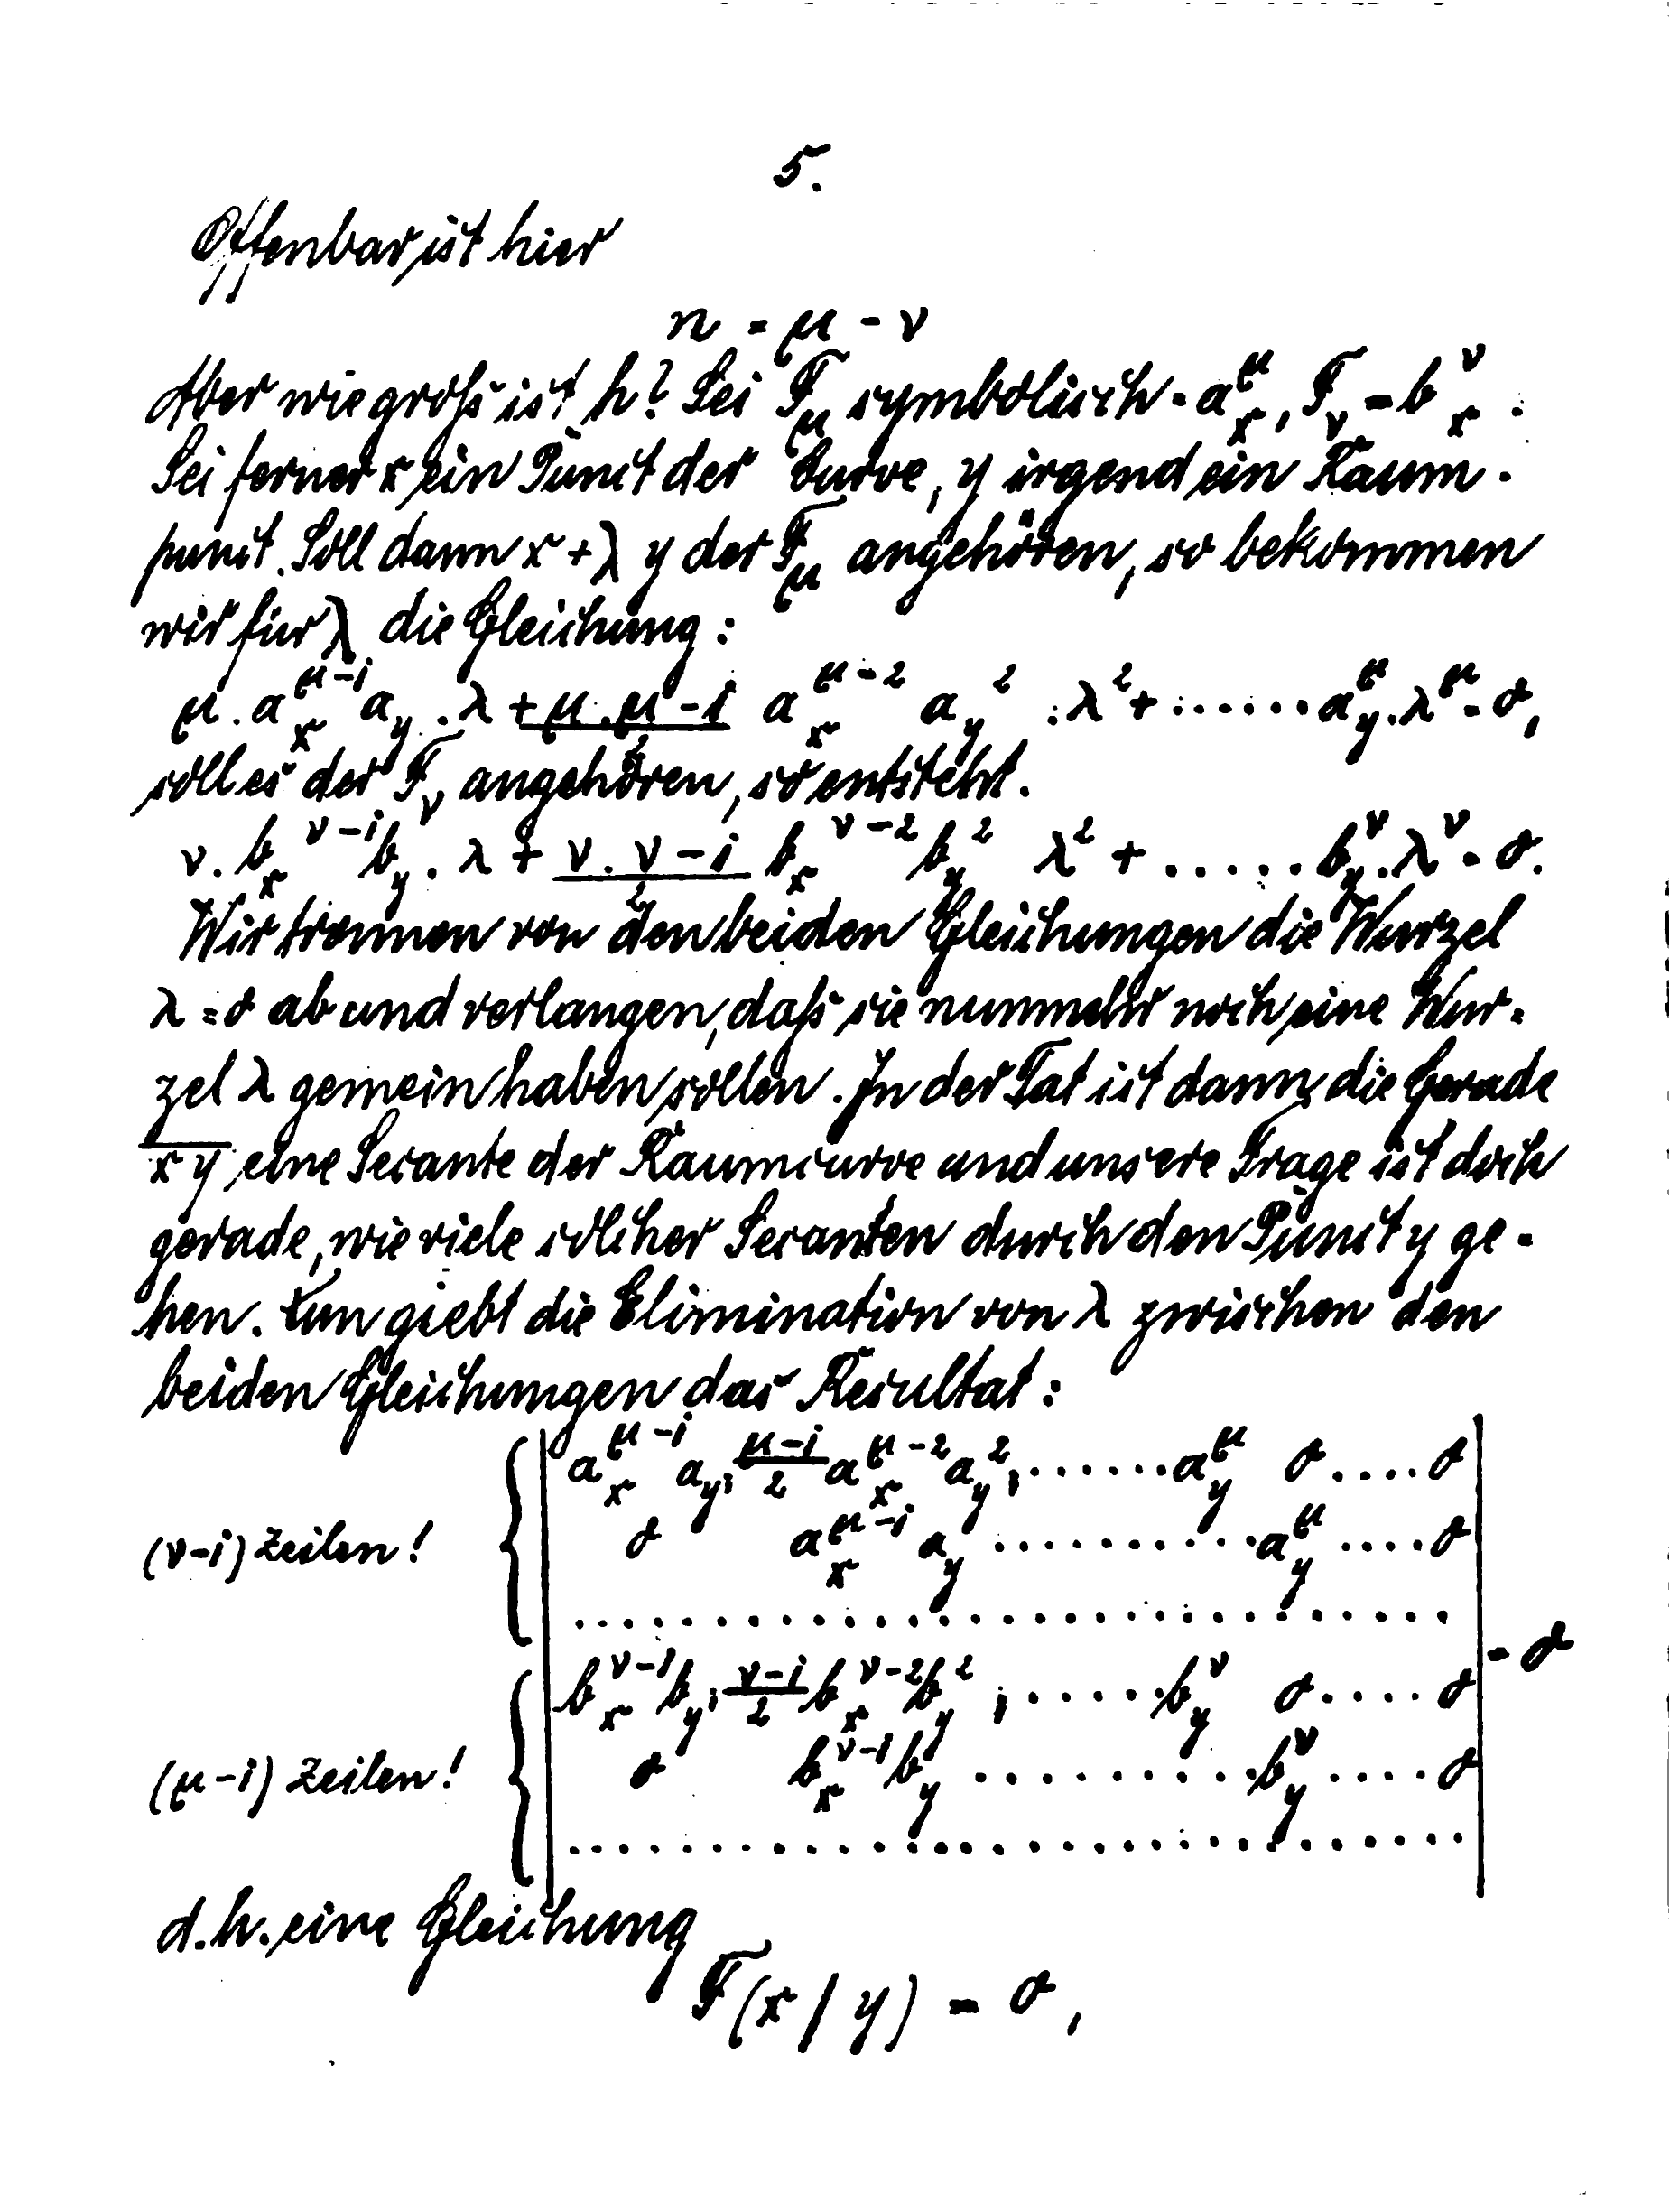 5.
Offenbar ist hier
n = μ - ν
Aber wie groß ist h? Sei F_μ symbolisch = a_x^μ, F_ν = b_x^ν.
Sei ferner x ein Punct der Curve, y irgend ein Raum-
punct. Soll dann x + λ y der F_μ angehören, so bekommen
wir für λ die Gleichung:
μ . a_x^{μ-1} a_y . λ + \frac{μ . μ-1}{2} a_x^{μ-2} a_y^2 . λ^2 + ...... a_y^μ . λ^μ = 0,
soll es der F_ν angehören, so entsteht.
ν . b_x^{ν-1} b_y . λ + \frac{ν . ν-1}{2} b_x^{ν-2} b_y^2 λ^2 + ..... b_y^ν . λ^ν = 0.
Wir trennen von den beiden Gleichungen die Wurzel
λ = 0 ab und verlangen, daß sie nunmehr noch eine Wur-
zel λ gemein haben sollen. In der Tat ist dann die Gerade
\overline{x y} eine Secante der Raumcurve und unsere Frage ist doch
gerade, wie viele solcher Secanten durch den Punct y ge-
hen. Nun giebt die Elimination von λ zwischen den
beiden Gleichungen das Resultat:
a_x^{μ-1} a_y, \frac{μ-1}{2} a_x^{μ-2} a_y^2, ....... a_y^μ 0 .... 0
(ν-1) Zeilen! 0 a_x^{μ-1} a_y .......... a_y^μ .... 0
..............................
b_x^{ν-1} b_y, \frac{ν-1}{2} b_x^{ν-2} b_y^2, ...... b_y^ν 0 .... 0 = 0
(μ-1) Zeilen! 0 b_x^{ν-1} b_y .......... b_y^ν .... 0
..............................
d.h. eine Gleichung
F(x / y) = 0,